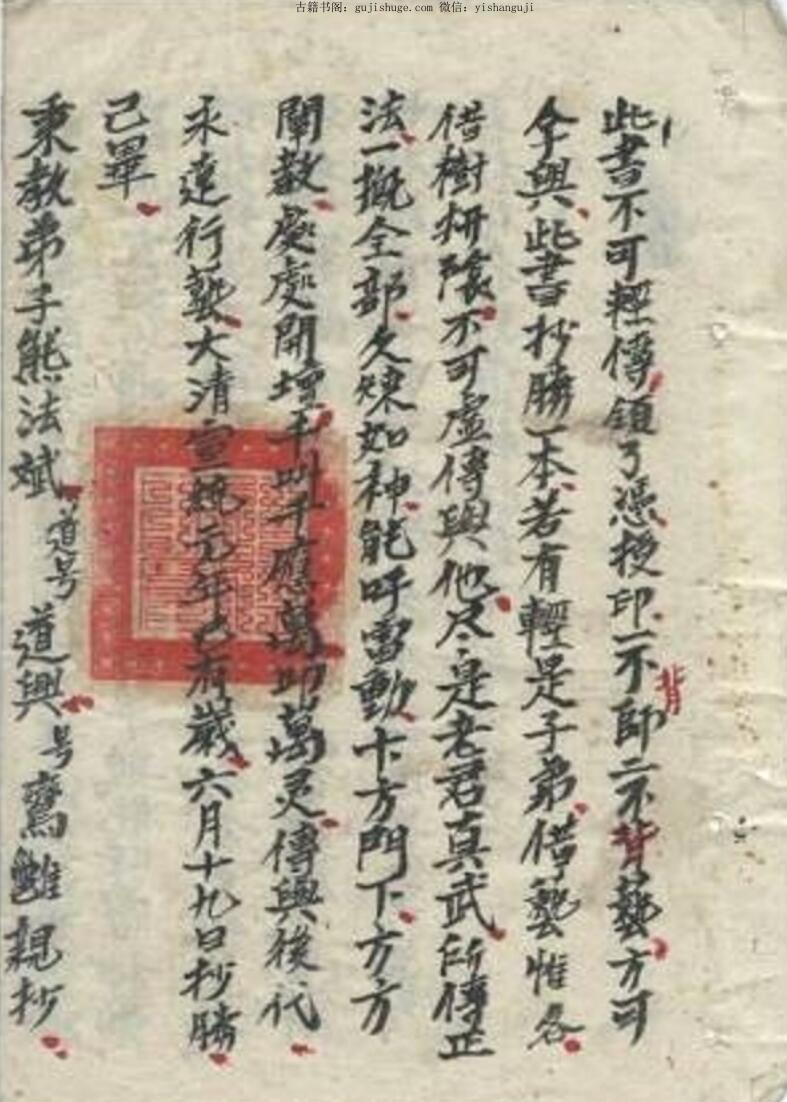 古籍书阁：gujishuge.com 微信：yishanguji
此書不可輕傳領了憑授印一不背師二不背藝方可
今與此書抄勝一本若有輕是子弟借藝惟名
借樹研陰不可虛傳與他尽是老君真武所傳正
法一概全部久煉如神能呼雷動卞方門下方方
闡教處處開壇千叫千應萬叩萬灵傳與後代
永遠行藝大清宣統元年己有歲六月十九日抄勝
己畢
秉教弟子熊法斌道号道興号鸞親抄